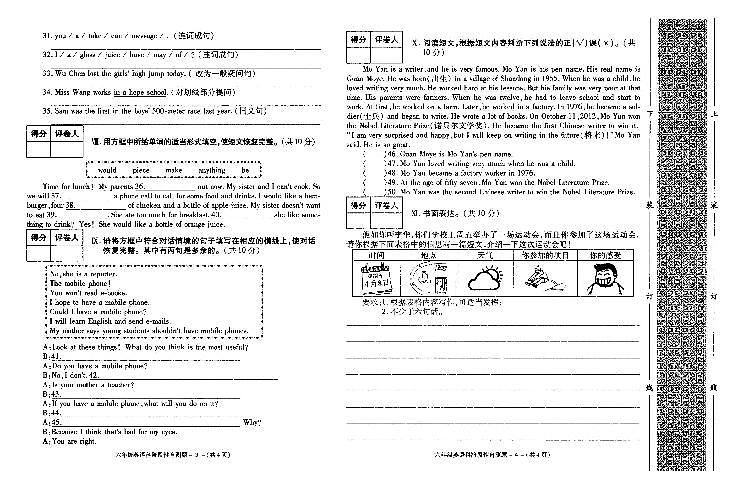 31. you / a / take / can / message / . (连词成句)
32. I / a / glass / juice / have / may / of / ? (连词成句)
33. Wu Chen lost the girls' high jump today. (改为一般疑问句)
34. Miss Wang works in a hope school. (对划线部分提问)
35. Sam was the first in the boys' 300-metre race last year. (同义句)
得分 评卷人
Ⅷ. 用方框中所给单词的适当形式填空,使短文恢复完整。(共10分)
would piece make anything be
Time for lunch! My parents 36. out now. My sister and I can't cook. So
we will 37. a phone call to call for some food and drinks. I would like a ham-
burger, four 38. of chicken and a bottle of apple juice. My sister doesn't want
to eat 39. . She ate too much for breakfast. 40. she like some-
thing to drink? Yes! She would like a bottle of orange juice.
得分 评卷人
Ⅸ. 请将方框中符合对话情境的句子填写在相应的横线上,使对话
恢复完整。其中有两句是多余的。(共10分)
No, she is a reporter.
The mobile phone!
You won't read e-books.
I hope to have a mobile phone.
Could I have a mobile phone?
I will learn English and send e-mails.
My mother says young students shouldn't have mobile phones.
A: Look at these things! What do you think is the most useful?
B: 41.
A: Do you have a mobile phone?
B: No, I don't. 42.
A: Is your mother a teacher?
B: 43.
A: If you have a mobile phone, what will you do on it?
B: 44.
A: 45. Why?
B: Because I think that's bad for my eyes.
A: You are right.
得分 评卷人
Ⅹ. 阅读短文,根据短文内容判断下列说法的正(√)误(×)。(共
10分)
Mo Yan is a writer, and he is very famous. Mo Yan is his pen name. His real name is
Guan Moye. He was born(出生) in a village of Shandong in 1955. When he was a child, he
loved reading very much. He worked hard at his lessons. But his family was very poor at that
time. His parents were farmers. When he was twelve, he had to leave school and start to
work. At first, he worked on a farm. Later, he worked in a factory. In 1976, he became a sol-
dier(士兵) and began to write. He wrote a lot of books. On October 11, 2012, Mo Yan won
the Nobel Literature Prize(诺贝尔文学奖). He became the first Chinese writer to win it.
"I am very surprised and happy, but I will keep on writing in the future(将来)!" Mo Yan
said. He is so great.
( )46. Guan Moye is Mo Yan's pen name.
( )47. Mo Yan loved reading very much when he was a child.
( )48. Mo Yan became a factory worker in 1976.
( )49. At the age of fifty-seven, Mo Yan won the Nobel Literature Prize.
( )50. Mo Yan was the second Chinese writer to win the Nobel Literature Prize.
得分 评卷人
Ⅺ. 书面表达。(共10分)
时间 地点 天气 你参加的项目 你的感受
要求:1. 根据表格内容写作,可适当发挥;
2. 不少于六句话。